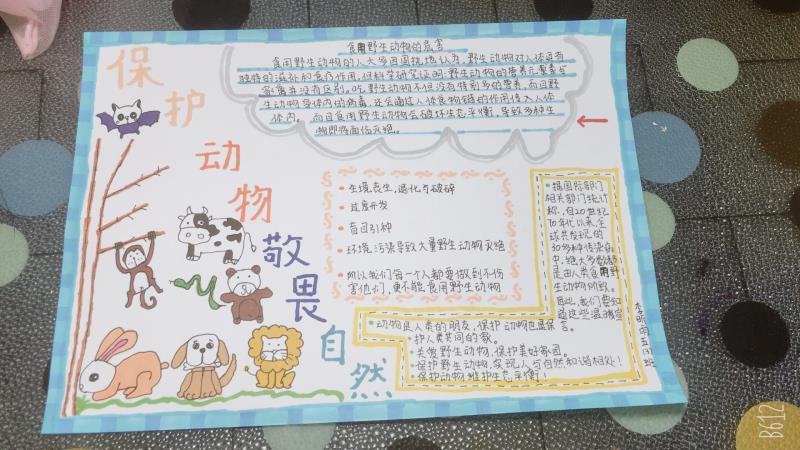 保护
动物
敬畏
自然
食用野生动物的危害
食用野生动物的人大多因固执地认为,野生动物对人体具有
独特的滋补和食疗作用,但科学研究证明:野生动物的营养元素与
家禽并没有区别。吃野生动物不但没有特别多的营养,而且野
生动物身体内的病毒,还会通过人体食物链的作用传入人体
体内。而且食用野生动物会破坏生态平衡,导致多种生
物即将面临灭绝。
生境丧失,退化与破碎
过度开发
盲目引种
环境污染导致大量野生动物灭绝
所以我们每一个人都要做到不伤
害他们,更不能食用野生动物
据国际部门
相关部门统计
称,自20世纪
70年代以来,全
球共发现的
30多种传染病
中,绝大多数都
是由人类食用野
生动物所致。
因此,我们要知
道这些温馨宣
言。
动物是人类的朋友,保护动物也是保
护人类共同的家。
关爱野生动物,保护美好家园。
保护野生动物,实现人与自然和谐相处!
保护动物,维护生态平衡!
B612